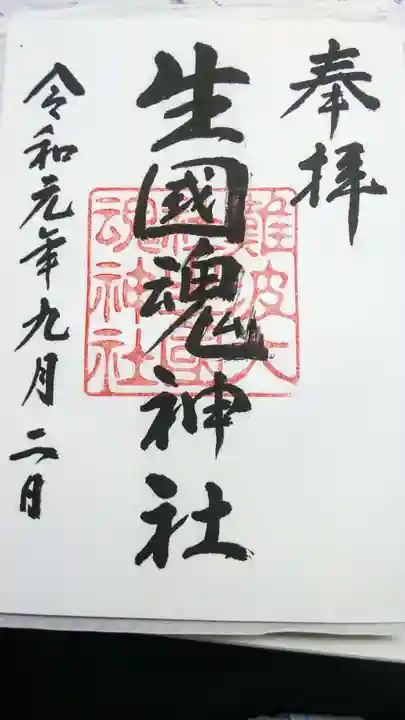 奉拝
生國魂神社
難波大
魂神社
令和元年九月二日